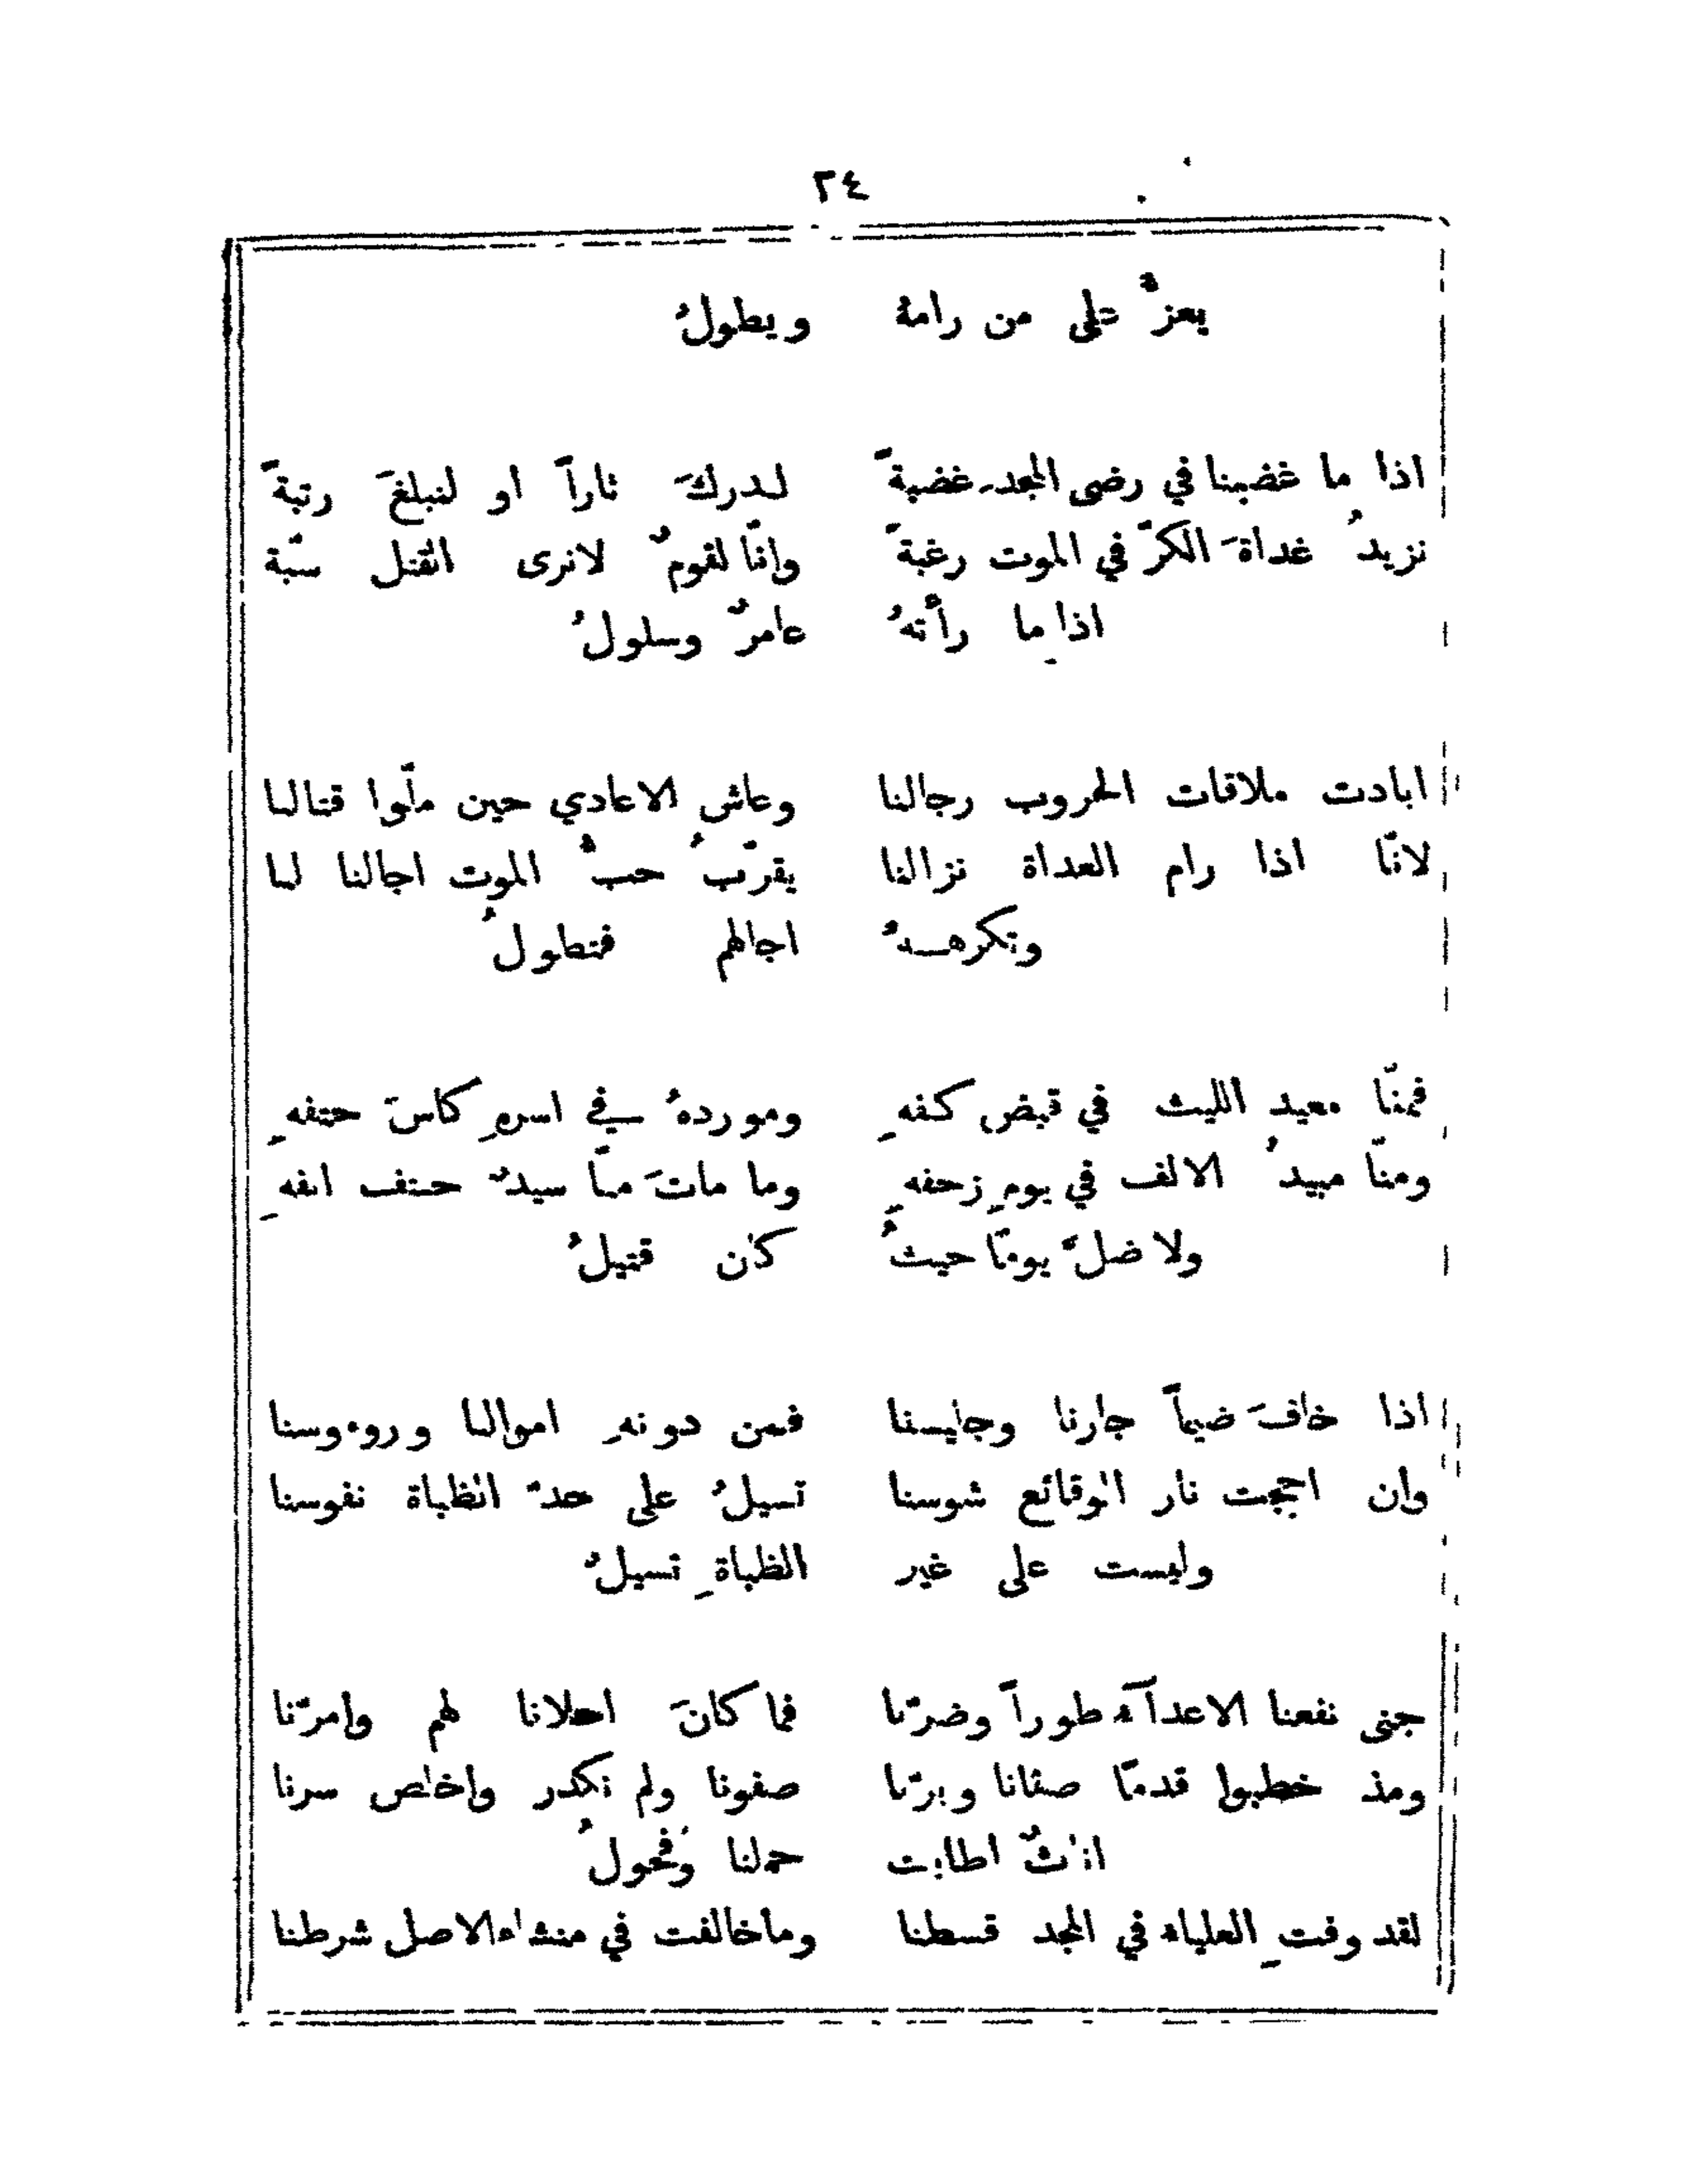 ٢٤
يعزُّ على من رامهُ ويطولُ
اذا ما غضبنا في رضى المجد غضبةً لندركَ ثاراً او لنبلغَ رتبةً
نزيدُ غداةَ الكرّ في الموت رغبةً وانّا لقومٌ لانرى القتل سبّة
اذا ما رأتهُ عامرٌ وسلولُ
ابادت ملاقات الحروب رجالنا وعاش الاعادي حين ملّوا قتالنا
لانّا اذا رام العداة نزالنا يقرّبُ حبُّ الموت اجالنا لنا
وتكرههُ اجالهم فتطولُ
فمنّا معيد الليث في قبض كفهِ وموردهُ في اسرهِ كاسَ حتفهِ
ومنّا مبيدُ الالف في يومِ زحفهِ وما ماتَ منّا سيدٌ حتف انفهِ
ولا ضلَّ يومًا حيثُ كان قتيلُ
اذا خافَ ضيماً جارنا وجليسنا فمن دونهِ اموالنا وروءوسنا
وان اججت نار الوقائع شوسنا تسيلُ على حدّ الظباة نفوسنا
وليست على غير الظباةِ تسيلُ
جنى نفعنا الاعدآء طوراً وضرّنا فما كانَ احلانا لهم وامرّنا
ومذ خطبوا قدمًا صفانا وبرّنا صفونا ولم نكدر واخلص سرنا
اناثٌ اطابت حملنا وفحولُ
لقد وفتِ العلياء في المجد قسطنا وماخالفت في منشاء الاصل شرطنا